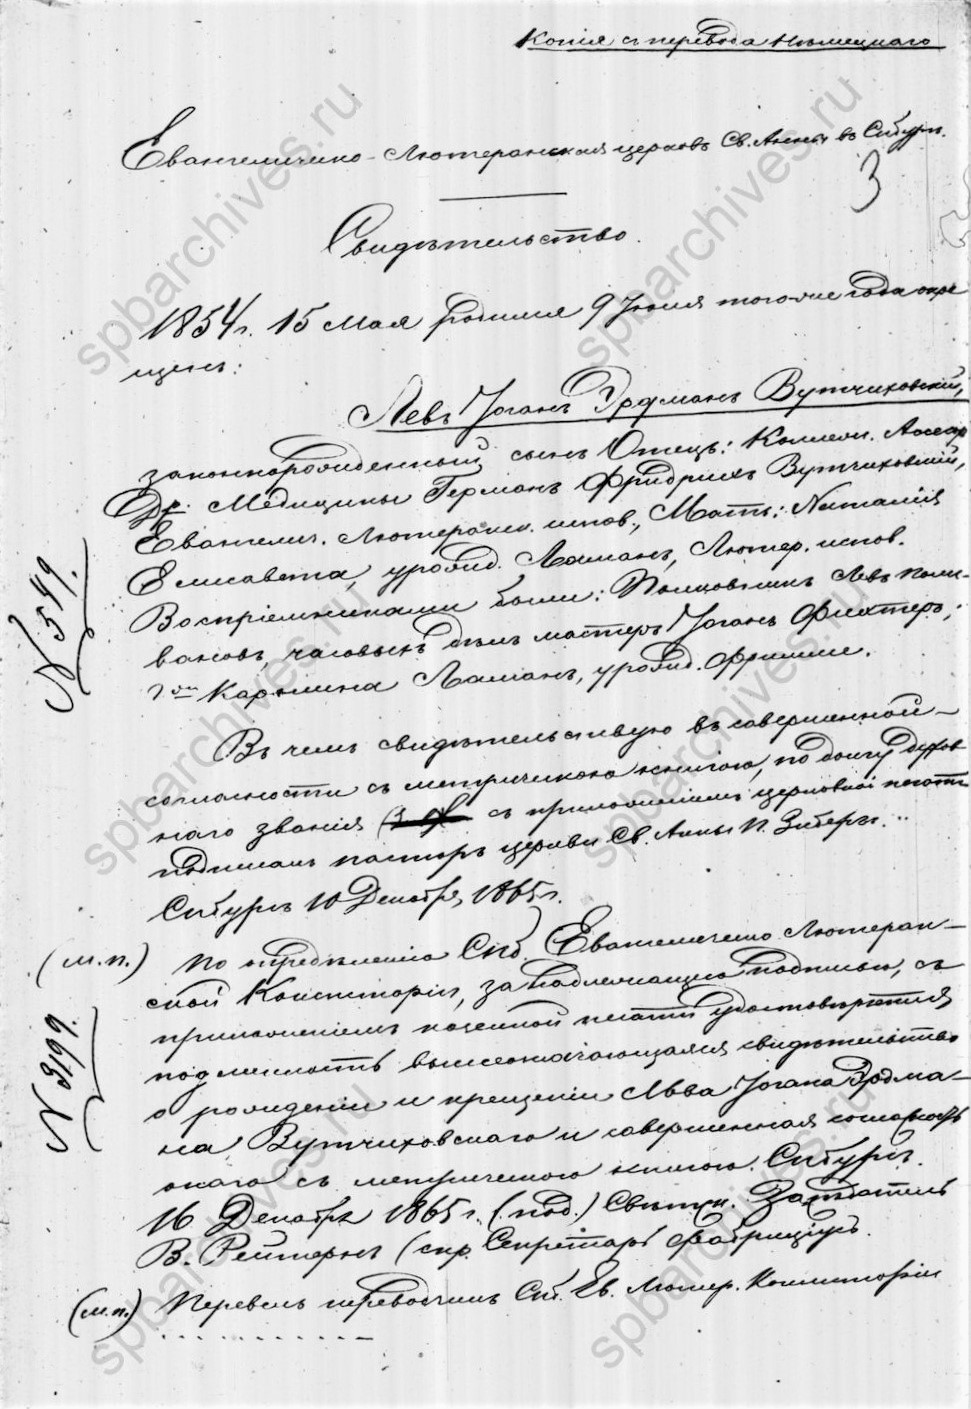 Копія съ перевода Нѣмецкаго
Евангелическо-Лютеранская церковь Св. Анны въ С.п.бургѣ.
3
Свидѣтельство.
1854 г. 15 Мая родился 9 Іюня того же года окре
щенъ:
Левъ Іоганъ Эрдманъ Вутчиховскій,
законнорожденный сынъ Отецъ: Коллеж. Ассесор
Др. Медицины Германъ Фридрихъ Вутчиховскій,
Евангелич. Лютеранск. испов., Мать: Наталія
Елисавета, урожд. Ламанъ, Лютер. испов.
Воспріемниками были: Полковникъ Левъ Поли-
вановъ, часовыхъ дѣлъ мастеръ Іоганъ Фихтеръ,
г-жа Каролина Ламанъ, урожд.
№ 549.
Въ чемъ свидѣтельствую въ совершенной
согласности съ метрическою книгою, по долгу духов
наго званія съ приложеніемъ церковной печати
подписалъ пасторъ церкви Св. Анны
С.п.бургъ 10 Декабря, 1865 г.
(м.п.) По опредѣленію Спб. Евангелическо Лютеран-
ской Консисторіи, за надлежащею подписью, съ
приложеніемъ казенной печати удостовѣряется
подлинность вышеозначающагося свидѣтельства
о рожденіи и крещеніи Льва Іогана Эрдма-
на Вутчиховскаго и совершенная согласность
онаго съ метрическою книгою. С.п.бургъ.
№ 3199.
16 Декабря 1865 г. (под.) Свѣтск. Засѣдатель
В. Рейтернъ (скр. Секретарь Фабриціусъ.
(м.п.) Перевелъ переводчикъ Спб. Ев. Лютер. Консисторіи